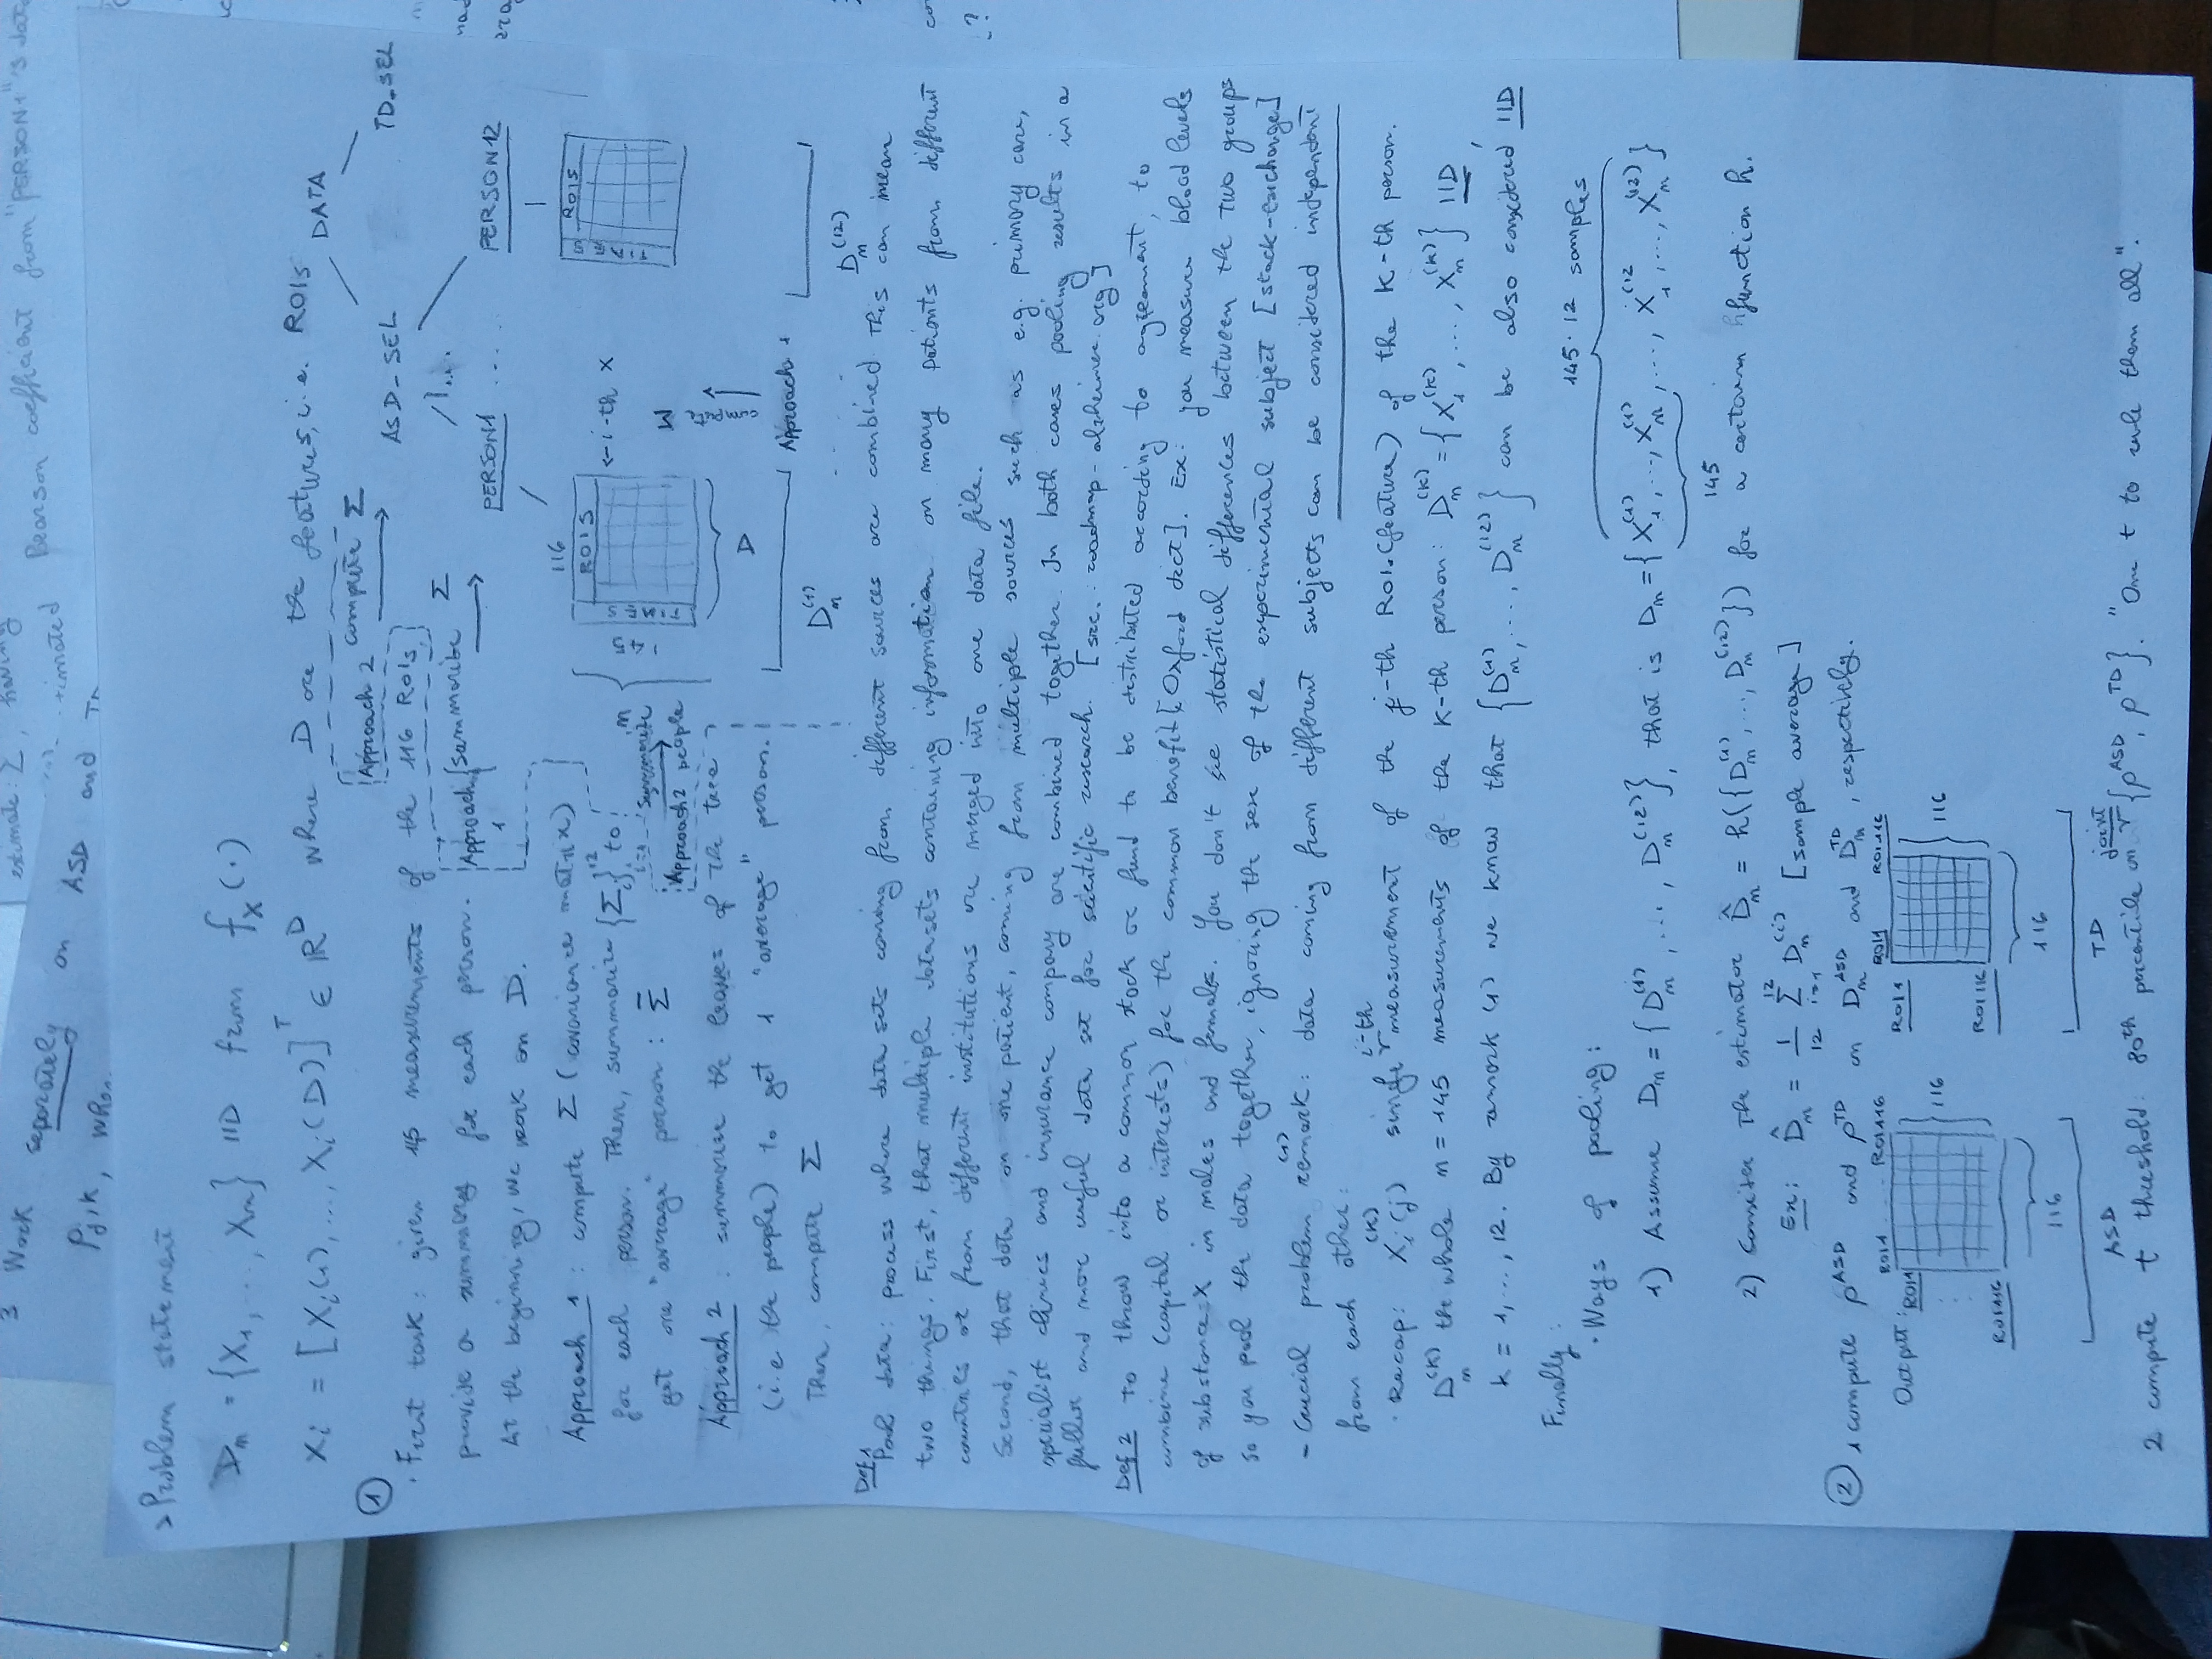 3 Work separately on ASD and
Pj,k,
estimate: Σ, having
Pearson coefficient from "PERSON1"'s data
> Problem statement
Dn = {X1, ..., Xn} IID from fX(·)
Xi = [Xi(1), ..., Xi(D)]^T ∈ R^D where D are the features, i.e. ROIs
DATA
ASD_SEL
TD_SEL
Approach 2 compute Σ
①
· First task: given 145 measurements of the 116 ROIs
provide a summary for each person.
At the beginning, we work on D.
Approach 1
Summarize Σ
PERSON1 ..... PERSON12
Approach 1: compute Σ (covariance matrix)
for each person. Then, summarize {Σi}i=1^12 to
get one "average" person: Σ̄
Summarize
Approach 2 people
116
ROIS
TIMES
145
n
D
<-i-th X
ROIS
TIMES
compute Σ
Approach 1
Dn^(1)
.....
Dn^(12)
Approach 2: summarise the leaves of the tree
(i.e. the people) to get 1 "average" person.
Then, compute Σ
Def 1
Pool data: process where data sets coming from different sources are combined. This can mean
two things. First, that multiple datasets containing information on many patients from different
countries or from different institutions are merged into one data file.
Second, that data on one patient, coming from multiple sources such as e.g. primary care,
specialist clinics and insurance company are combined together. In both cases pooling results in a
fuller and more useful data set for scientific research. [src.: roadmap-alzheimer.org]
Def 2 To throw into a common stock or fund to be distributed according to agreement, to
combine (capital or interests) for the common benefit [Oxford dict]. Ex: you measure blood levels
of substance X in males and females. You don't see statistical differences between the two groups
so you pool the data together, ignoring the sex of the experimental subject [stack-exchange]
- Crucial problem remark (1): data coming from different subjects can be considered independent
from each other:
· Recap: Xi^(k)(j) single i-th measurement of the j-th ROI (feature) of the k-th person.
Dn^(k) the whole n = 145 measurements of the k-th person: Dn^(k) = {X1^(k), ..., Xn^(k)} IID,
k = 1, ..., 12. By remark (1) we know that {Dn^(1), ..., Dn^(12)} can be also considered IID
Finally:
· Ways of pooling:
145 · 12 samples
1) Assume Dn = {Dn^(1), ..., Dn^(12)}, that is Dn = {X1^(1), ..., Xn^(1), ..., X1^(12, ..., Xn^(12)}
145
2) Consider the estimator D̂n = h({Dn^(1), ..., Dn^(12)}) for a certain function h.
Ex: D̂n = 1/12 Σi=1^12 Dn^(i) [sample average]
② 1 compute ρ^ASD and ρ^TD on Dn^ASD and Dn^TD, respectively.
Output:
ROI1 .... ROI116
ROI1
ROI116
116
116
ASD
ROI1 ROI116
ROI1
ROI116
116
116
TD
2 compute t threshold: 80th percentile on joint {ρ^ASD, ρ^TD}. "One t to rule them all".